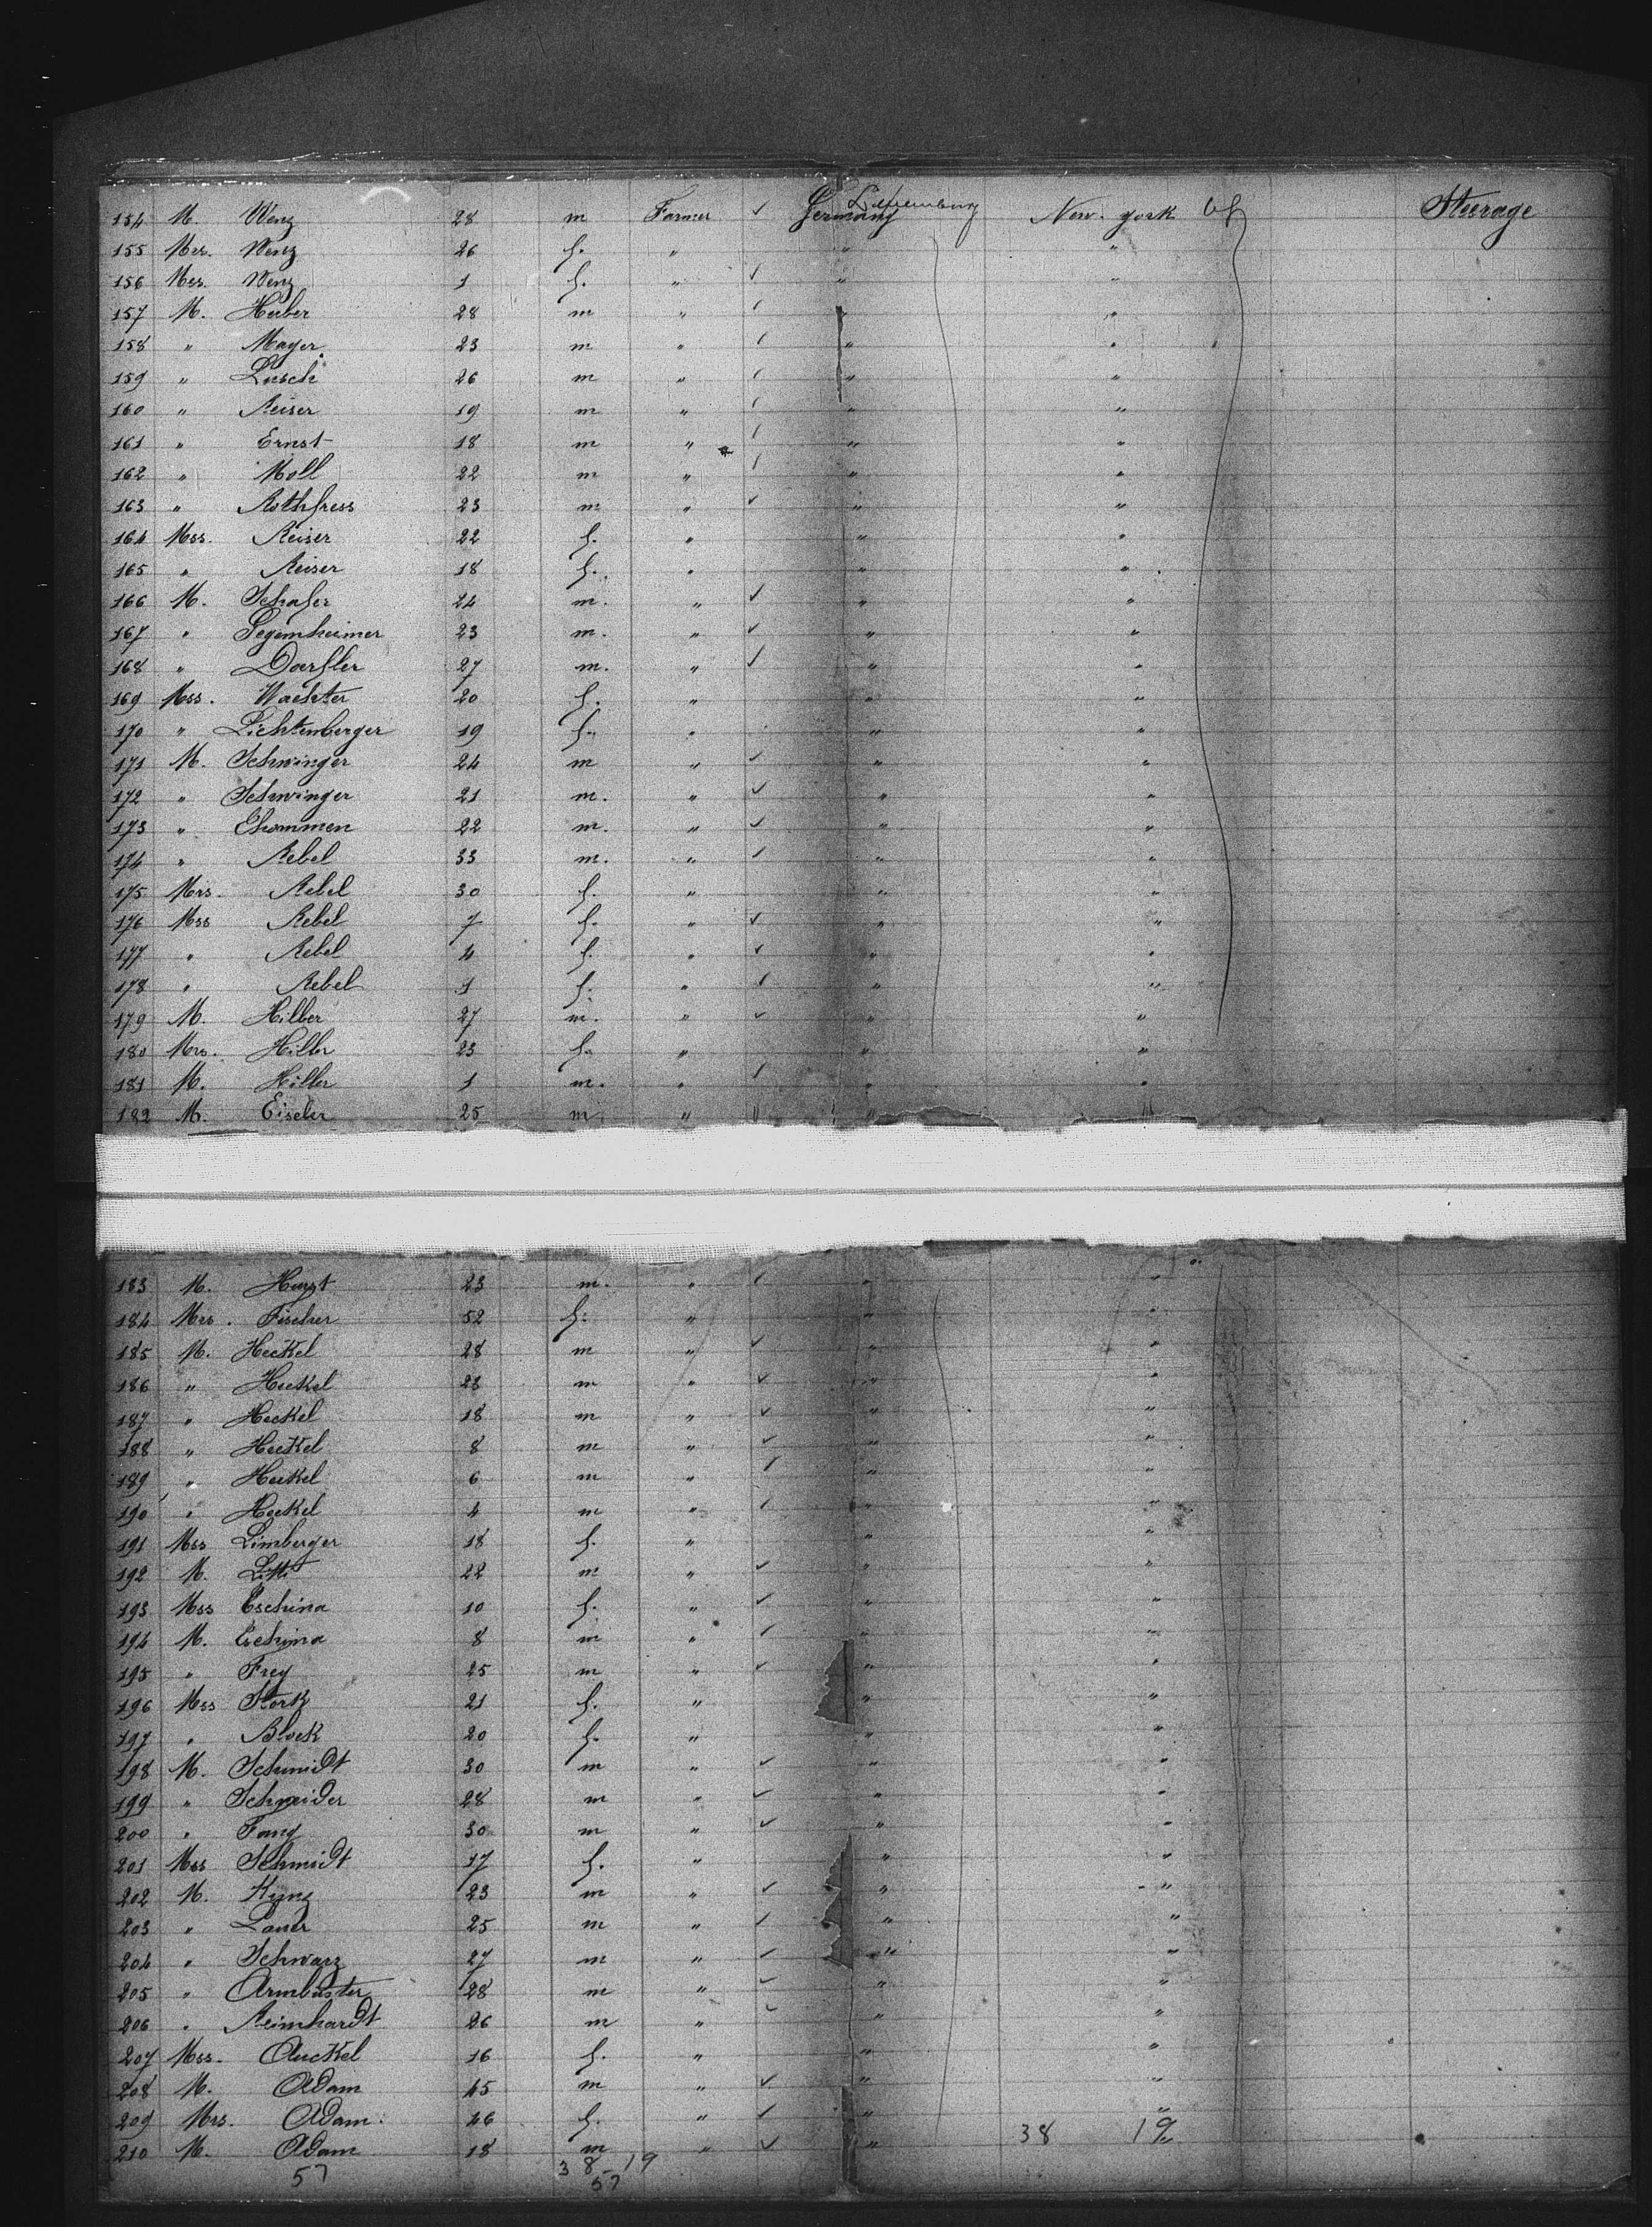 154 M. Wenz 28 m Farmer ✓ Germany Luxemburg New-york Steerage
155 Mrs. Wenz 26 f. " " "
156 Mss. Wenz 1 f. " ✓ " "
157 M. Huber 28 m " " "
158 " Mayer 23 m " " "
159 " Lusch 26 m " " "
160 " Reiser 19 m " " "
161 " Ernst 18 m " " "
162 " Moll 22 m " " "
163 " Rothfress 23 m " ✓ " "
164 Mss. Reiser 22 f. " " "
165 " Reiser 18 f. " " "
166 M. Schafer 24 m. " ✓ " "
167 " Gegemheimer 23 m. " ✓ " "
168 " Doerfler 27 m. " ✓ " "
169 Mss. Waechter 20 f. " " "
170 " Lichtemberger 19 f. " " "
171 M. Schwinger 24 m " ✓ " "
172 " Schwinger 21 m. " ✓ " "
173 " Chommen 22 m. " ✓ " "
174 " Rebel 33 m. " ✓ " "
175 Mrs. Rebel 30 f. " " "
176 Mss Rebel 7 f. " ✓ " "
177 " Rebel 4 f. " ✓ " "
178 " Rebel 1 f. " ✓ " "
179 M. Hiller 27 m. " ✓ " "
180 Mrs. Hiller 23 f. " " "
181 M. Hiller 1 m. " ✓ " "
182 M. Eiseler 25 m " " " "
183 M. Hurst 23 m. " ✓ " "
184 Mrs. Fischer 52 f. " " "
185 M. Heckel 28 m " ✓ " "
186 " Heckel 23 m " ✓ " "
187 " Heckel 18 m " ✓ " "
188 " Heckel 8 m " ✓ " "
189 " Heckel 6 m " ✓ " "
190 " Heckel 4 m " ✓ " "
191 Mss Limberger 18 f. " " "
192 M. Litti 22 m " ✓ " "
193 Mss Eschina 10 f. " ✓ " "
194 M. Eschina 8 m " ✓ " "
195 " Frey 25 m " ✓ " "
196 Mss Stork 21 f. " " "
197 " Block 20 f. " " "
198 M. Schmidt 30 m " ✓ " "
199 " Schneider 28 m " ✓ " "
200 " Fang 30 m " ✓ " "
201 Mss Schmidt 17 f. " " "
202 M. Kunz 23 m " ✓ " "
203 " Lauer 25 m " ✓ " "
204 " Schwarz 27 m " ✓ " "
205 " Armbuster 28 m " ✓ " "
206 " Reimhardt 26 m " ✓ " "
207 Mss. Auckel 16 f. " " "
208 M. Adam 45 m " ✓ " "
209 Mrs. Adam. 46 f. " ✓ " "
210 M. Adam 18 m " ✓ " 38 19
57 38-19
57